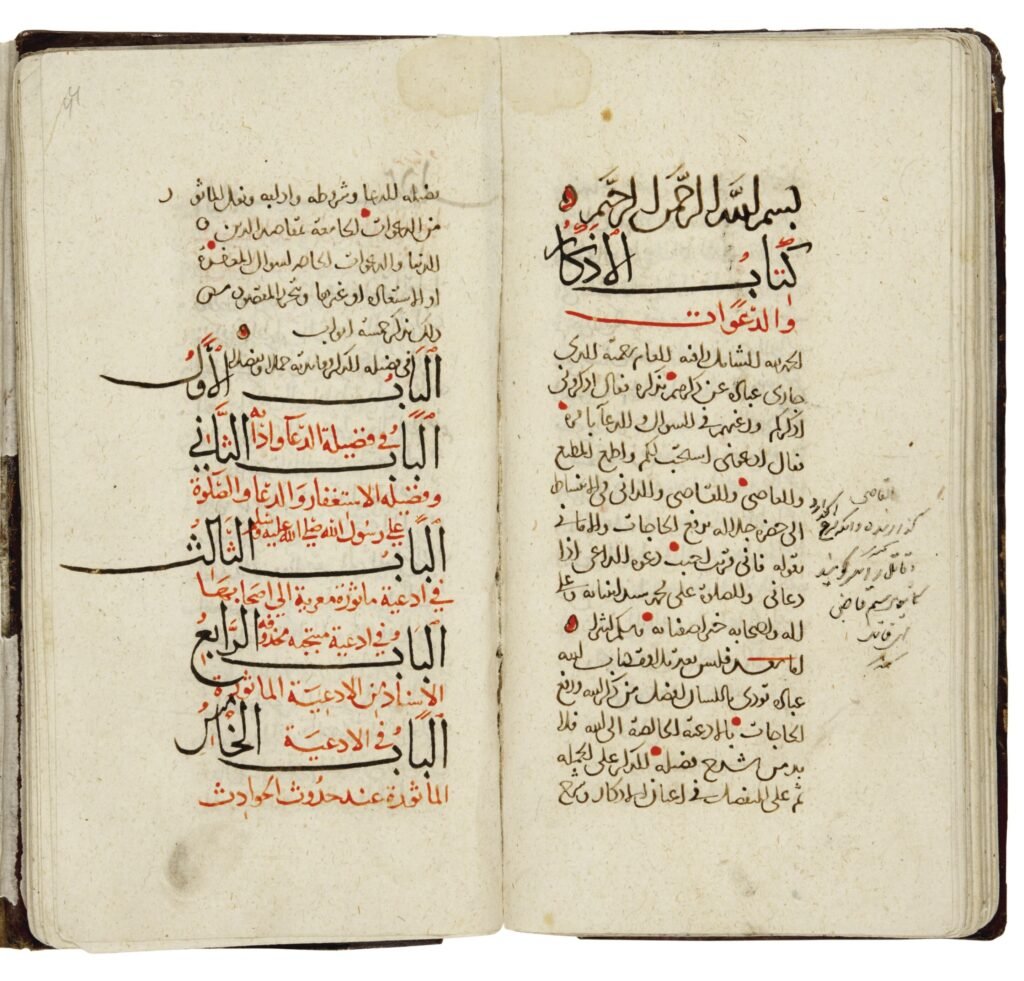 بسم الله الرحمن الرحيم
كتاب الاذكار
والدعوات
الحمد لله الشامله رافته العام رحمته الذي
جازى عباده عن ذكرهم بذكره فقال اذكروني
اذكركم ورغبهم في السوال والدعا بامره
فقال ادعوني استجب لكم واطمع المطيع
والعاصي والقاصي والداني في الانبساط
الى حضرة جلاله برفع الحاجات والاماني
بقوله فاني قريب اجيب دعوة الداعي اذا
دعاني والصلوة على محمد سيد انبيائه وعلى
اله واصحابه خير اصفيائه وسلم كثيرا
اما بعد فليس بعد تلاوة كتاب الله
عبادة تؤدى باللسان افضل من ذكر الله ورفع
الحاجات بالادعية الخالصة الى الله فلا
بد من شرح فضيلة الذكر على الجملة
ثم على التفصيل في اعيان الاذكار وشرح
القاضي
فضيلة الدعا وشروطه وادابه ونقل الماثور
من الدعوات الجامعة لمقاصد الدين
الدنيا والدعوات الخاصة لسوال المغفرة
او الاستعاذة او غيرها ويتحرر المقصود من
ذلك بذكر خمسة ابواب
الباب الأول في فضيلة الذكر وفائدته جملا وتفصيلا
الباب الثاني في فضيلة الدعآ وادابه
وفضيلة الاستغفار والدعا والصلوة
على رسول الله صلى الله عليه وسلم
الباب الثالث
في ادعية ماثورة معزية الى اصحابها
الباب الرابع في ادعية منتخبة محذوفة
الاسناد من الادعية الماثورة
الباب الخامس في الادعية
الماثورة عند حدوث الحوادث